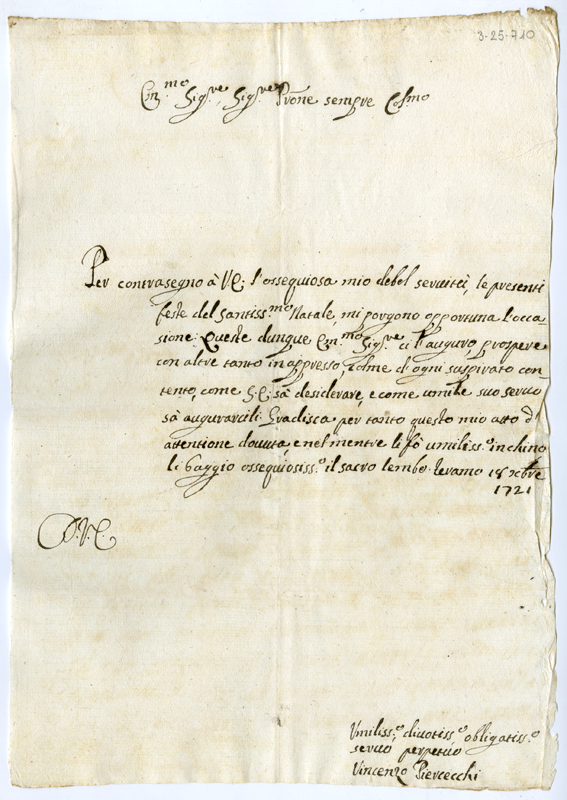 3-25-710
Em.mo Sig.re, Sig.re P'rone sempre Cols.mo
Per contrasegno à V.E. l'ossequiosa mio debol seruitù, le presenti
feste del Santiss.mo Natale, mi porgono opportuna l'occa-
sione. Queste dunque Em.mo Sig.re ci l'auguro, prospere
con altre tanto in appresso, colme di ogni suspirato con
tento, come S.E. sà desiderare, e come umile suo seruo
sà augurarcili. Gradisca per tanto questo mio atto d'
attentione douuta, e nel mentre li fò umiliss.o inchino
li baggio ossequiosiss.o il sacro lembo. Teramo 18 xcbre
1721
D.V.E.
Vmiliss.o, diuotiss.o obligatiss.o
seruo perpetuo
Vincenzo Piercecchi